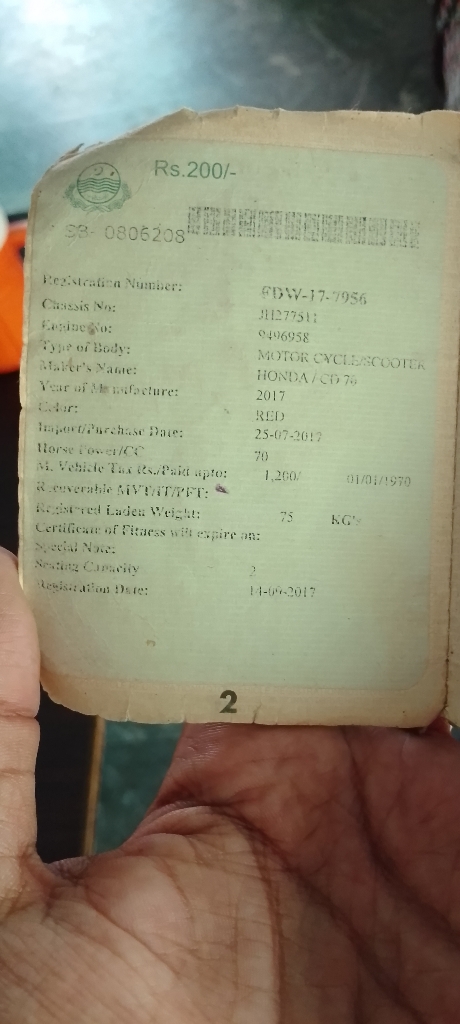 Rs.200/-
SB- 0806208
Registration Number: FDW-17-7956
Chassis No: JH277511
Engine No: 9496958
Type of Body: MOTOR CYCLE/SCOOTER
Maker's Name: HONDA / CD 70
Year of Manufacture: 2017
Color: RED
Import/Purchase Date: 25-07-2017
Horse Power/CC 70
M. Vehicle Tax Rs./Paid upto: 1,200/ 01/01/1970
Recoverable MVT/IT/PFT:
Registered Laden Weight: 75 KG's
Certificate of Fitness will expire on:
Special Note:
Seating Capacity 2
Registration Date: 14-09-2017
2